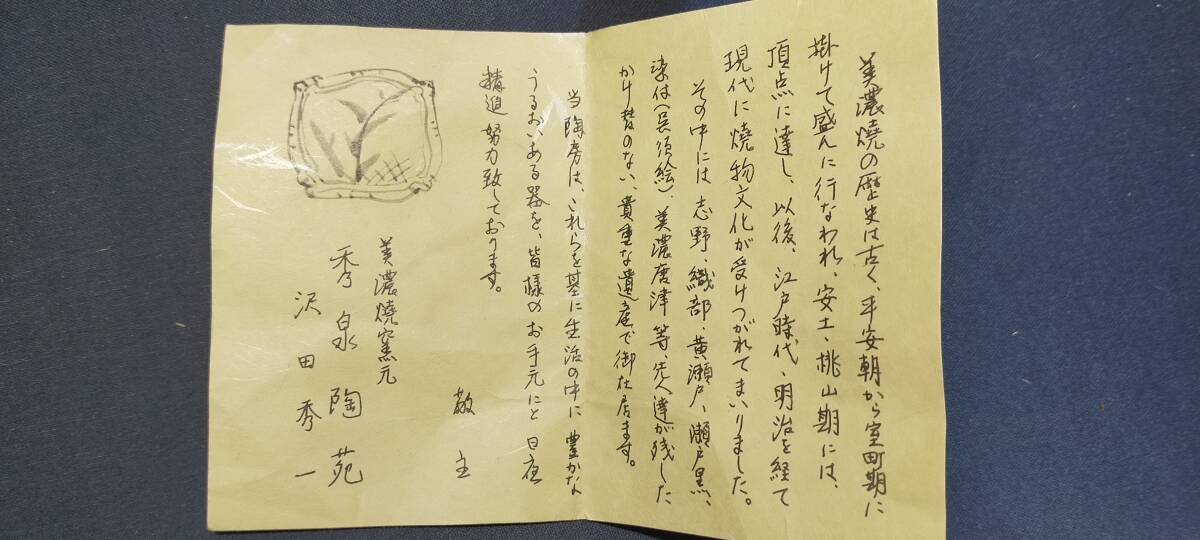 美濃燒の歴史は古く、平安朝から室町期に
掛けて盛んに行なわれ、安土、桃山期には、
頂点に達し、以後、江戸時代、明治を経て
現代に燒物文化が受けつがれてまいりました。
その中には志野、織部、黄瀬戸、瀬戸黒、
染付(呉須絵)、美濃唐津等、先人達が残した
かけ替のない、貴重な遺産で御仕居ます。
当陶房は、これらを基に生活の中に豊かな
うるおいある器を、皆様のお手元にと日夜
精進努力致しております。
敬主
美濃燒窯元
秀泉陶苑
沢田秀一